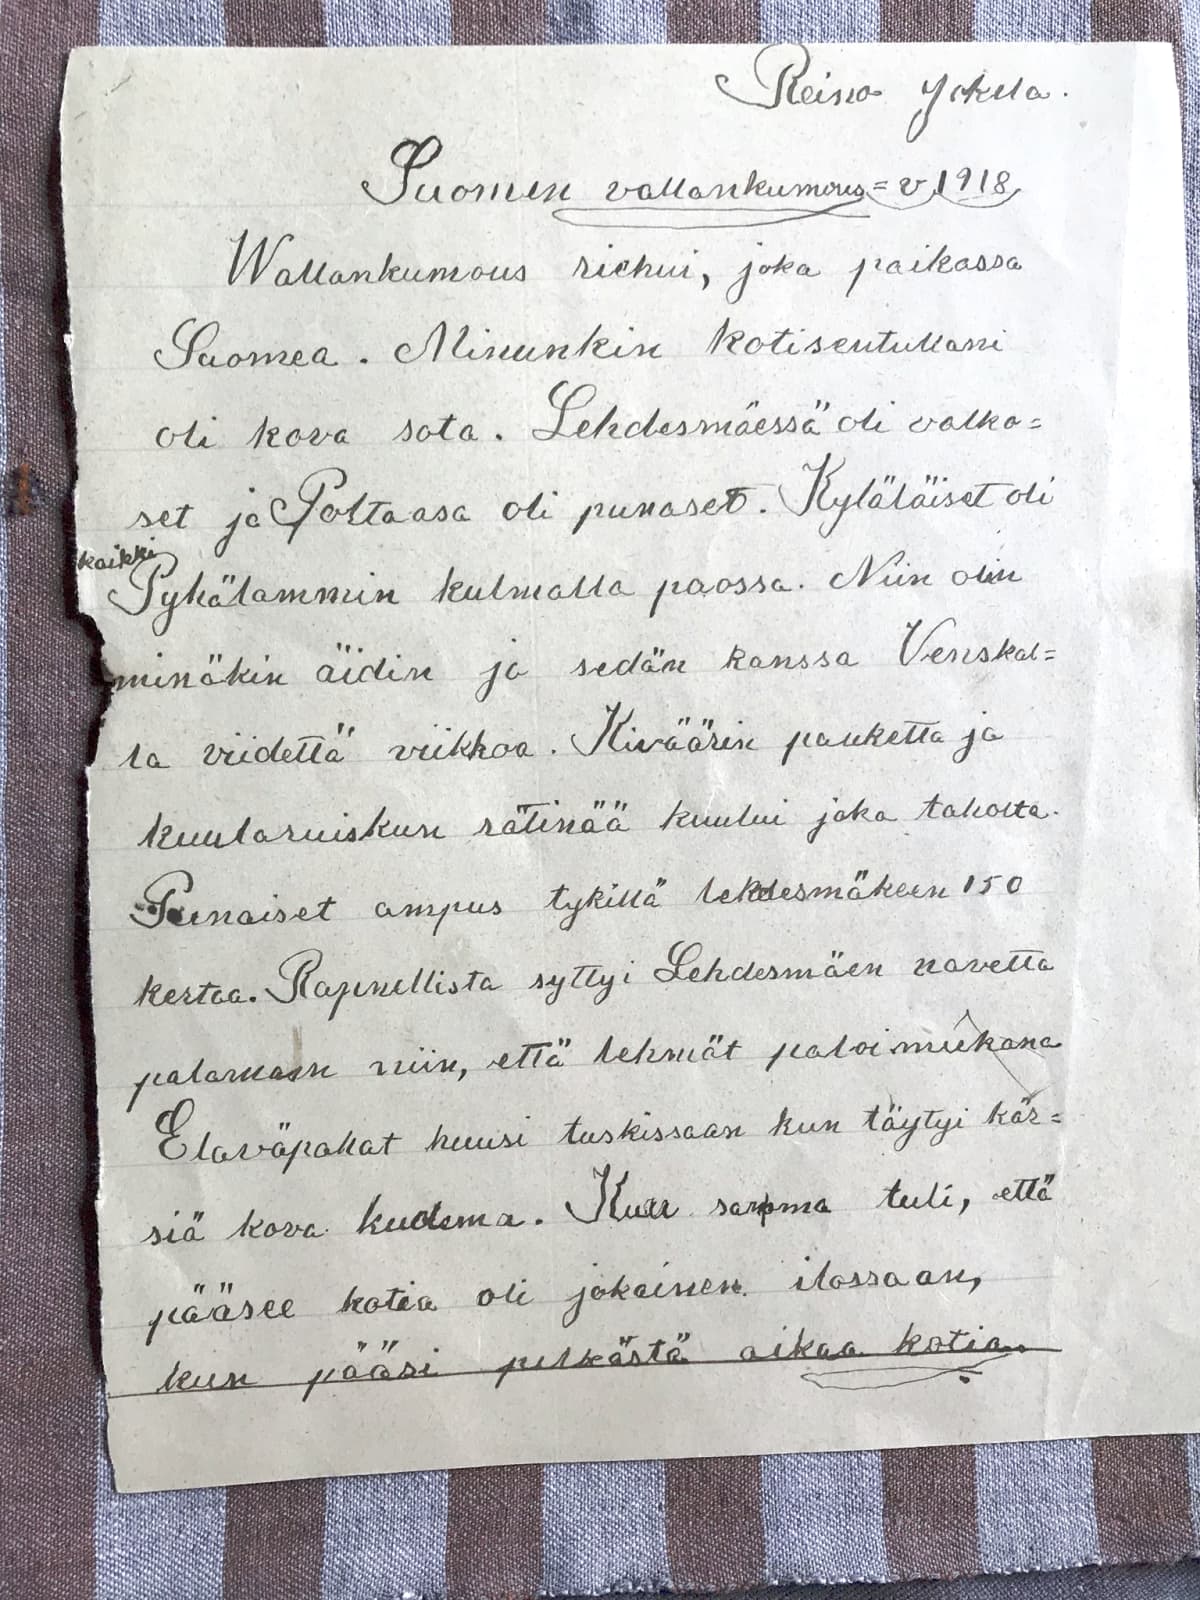 Reino Jokela.
Suomen vallankumous = v 1918
Wallankumous riehui, joka paikassa
Suomea. Minunkin kotiseutullani
oli kova sota. Lehdesmäessä oli valko=
set ja Poltaasa oli punaset. Kyläläiset oli
kaikki
Pyhälammin kulmalla paossa. Niin olin
minäkin äidin ja sedän kanssa Venskal=
la viidettä viikkoa. Kiväärin pauketta ja
kuularuiskun rätinää kuului joka taholta.
Punaiset ampus tykillä lehdesmäkeen 150
kertaa. Rapnellista syttyi Lehdesmäen navetta
palamaan niin, että lehmät paloi mukana
Elaväpahat huusi tuskissaan kun täytyi kär=
siä kova kudema. Kun sanoma tuli, että
pääsee kotia oli jokainen ilossaan,
kun pääsi pitkästä aikaa kotia.